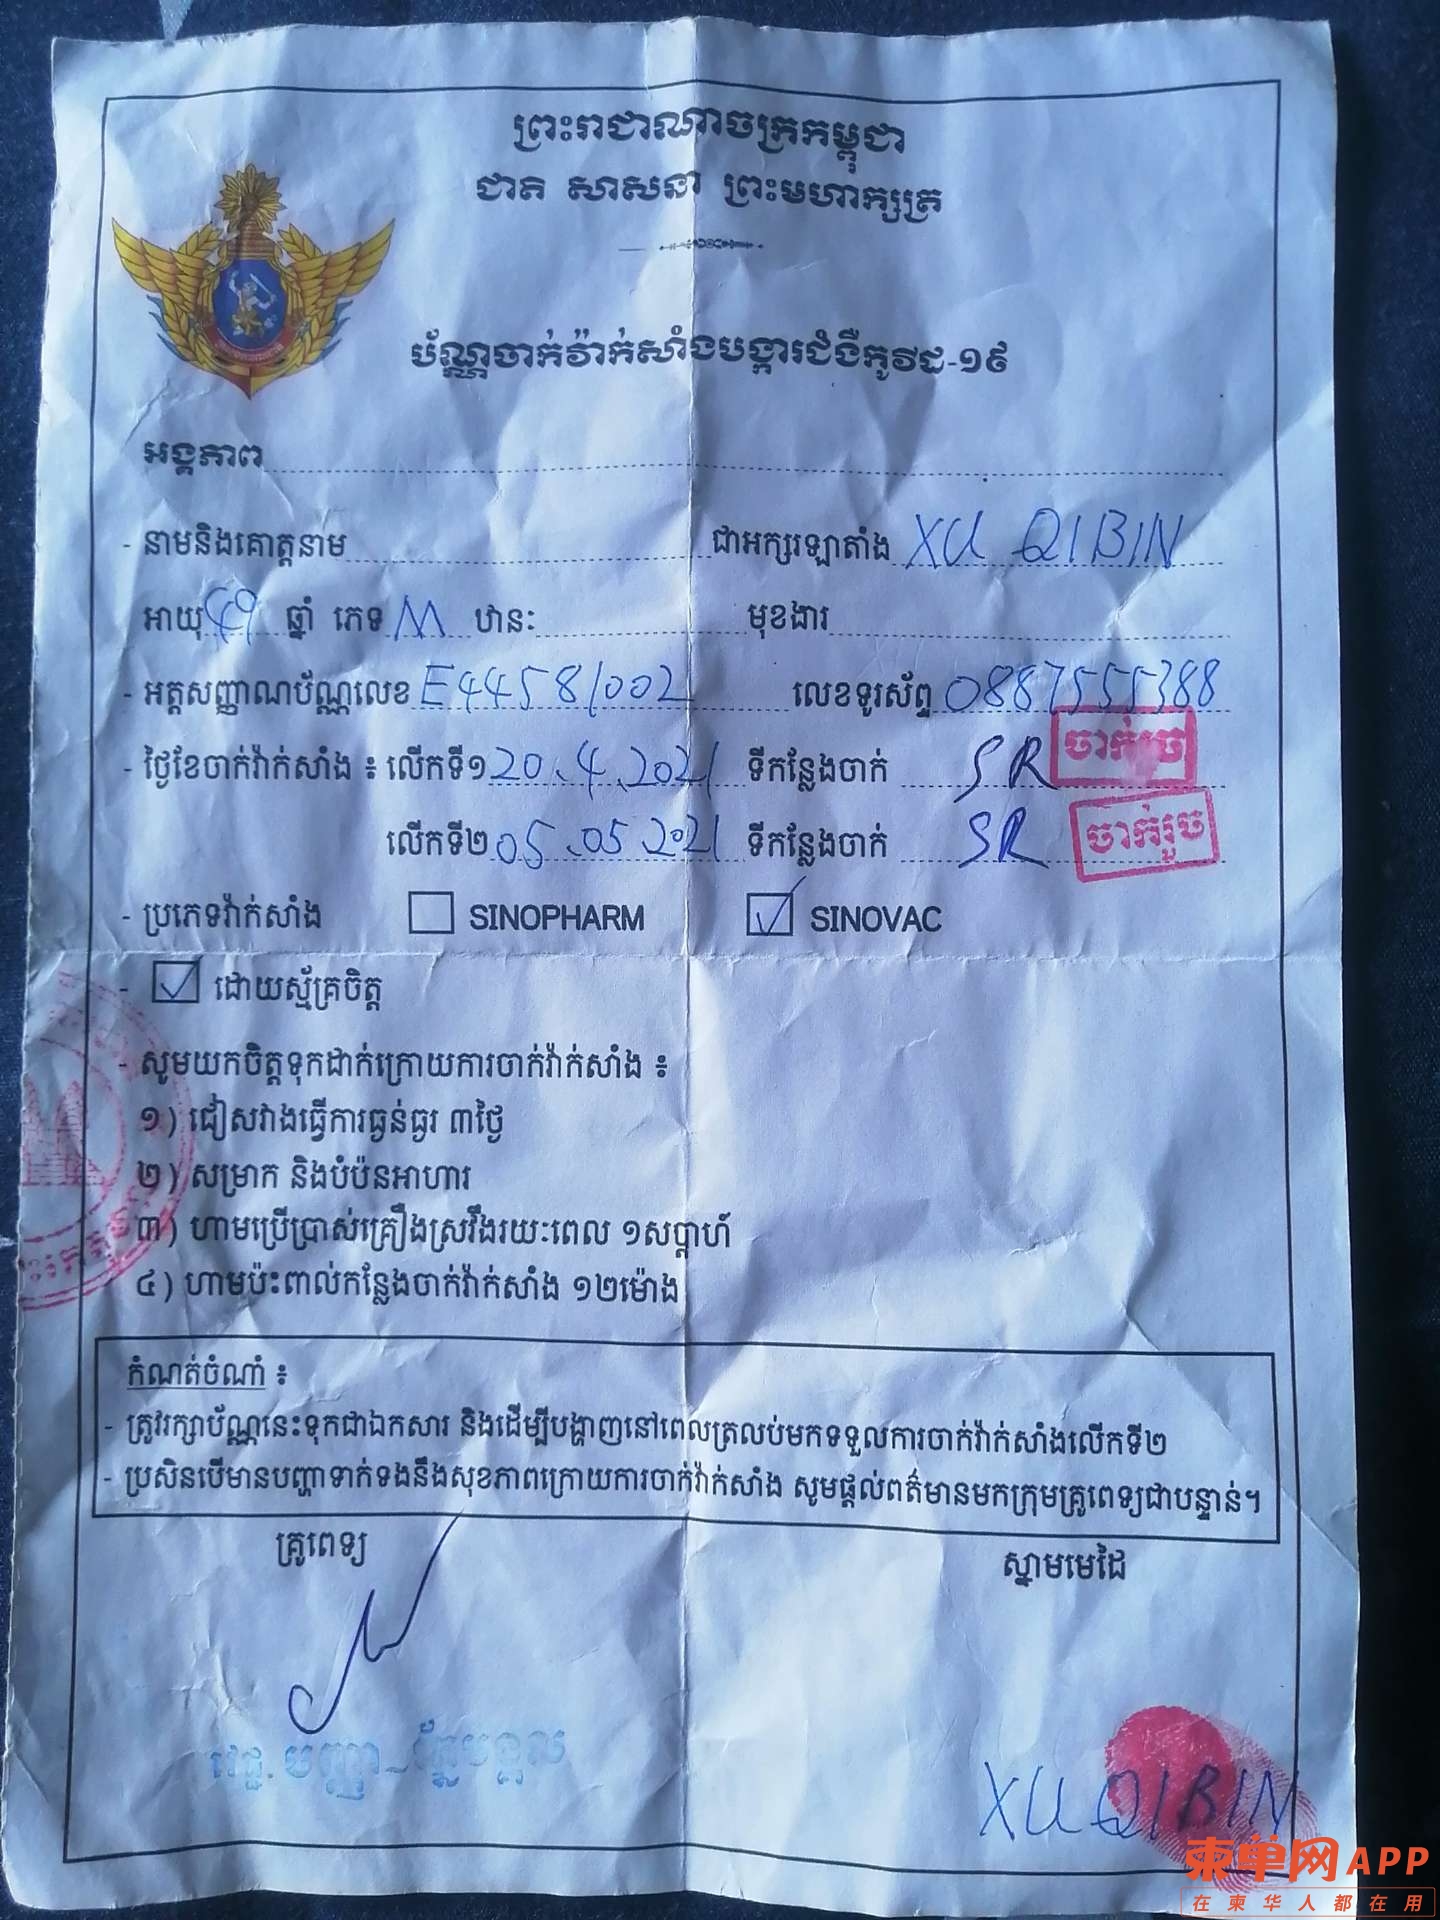 ព្រះរាជាណាចក្រកម្ពុជា
ជាតិ សាសនា ព្រះមហាក្សត្រ
ប័ណ្ណចាក់វ៉ាក់សាំងបង្ការជំងឺកូវីដ-១៩
អង្គភាព
- នាមនិងគោត្តនាម ជាអក្សរឡាតាំង XU QIBIN
អាយុ 49 ឆ្នាំ ភេទ M ឋានៈ មុខងារ
- អត្តសញ្ញាណប័ណ្ណលេខ E44581002 លេខទូរស័ព្ទ 0887555388
- ថ្ងៃខែចាក់វ៉ាក់សាំង ៖ លើកទី១ 20.4.2021 ទីកន្លែងចាក់ SR ចាក់រួច
លើកទី២ 05.05.2021 ទីកន្លែងចាក់ SR ចាក់រួច
- ប្រភេទវ៉ាក់សាំង SINOPHARM SINOVAC
- ដោយស្ម័គ្រចិត្ត
- សូមយកចិត្តទុកដាក់ក្រោយការចាក់វ៉ាក់សាំង ៖
១) ជៀសវាងធ្វើការធ្ងន់ធ្ងរ ៣ថ្ងៃ
២) សម្រាក និងបំប៉នអាហារ
៣) ហាមប្រើប្រាស់គ្រឿងស្រវឹងរយៈពេល ១សប្តាហ៍
៤) ហាមប៉ះពាល់កន្លែងចាក់វ៉ាក់សាំង ១២ម៉ោង
កំណត់ចំណាំ ៖
- ត្រូវរក្សាប័ណ្ណនេះទុកជាឯកសារ និងដើម្បីបង្ហាញនៅពេលត្រលប់មកទទួលការចាក់វ៉ាក់សាំងលើកទី២
- ប្រសិនបើមានបញ្ហាទាក់ទងនឹងសុខភាពក្រោយការចាក់វ៉ាក់សាំង សូមផ្តល់ពត៌មានមកក្រុមគ្រូពេទ្យជាបន្ទាន់។
គ្រូពេទ្យ
ស្នាមមេដៃ
XU QIBIN
柬单网APP
在柬华人都在用